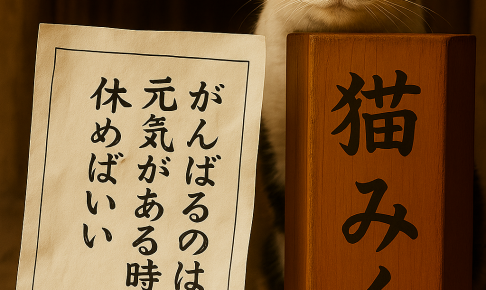 がんばるのは
元気がある時
休めばいい
猫み